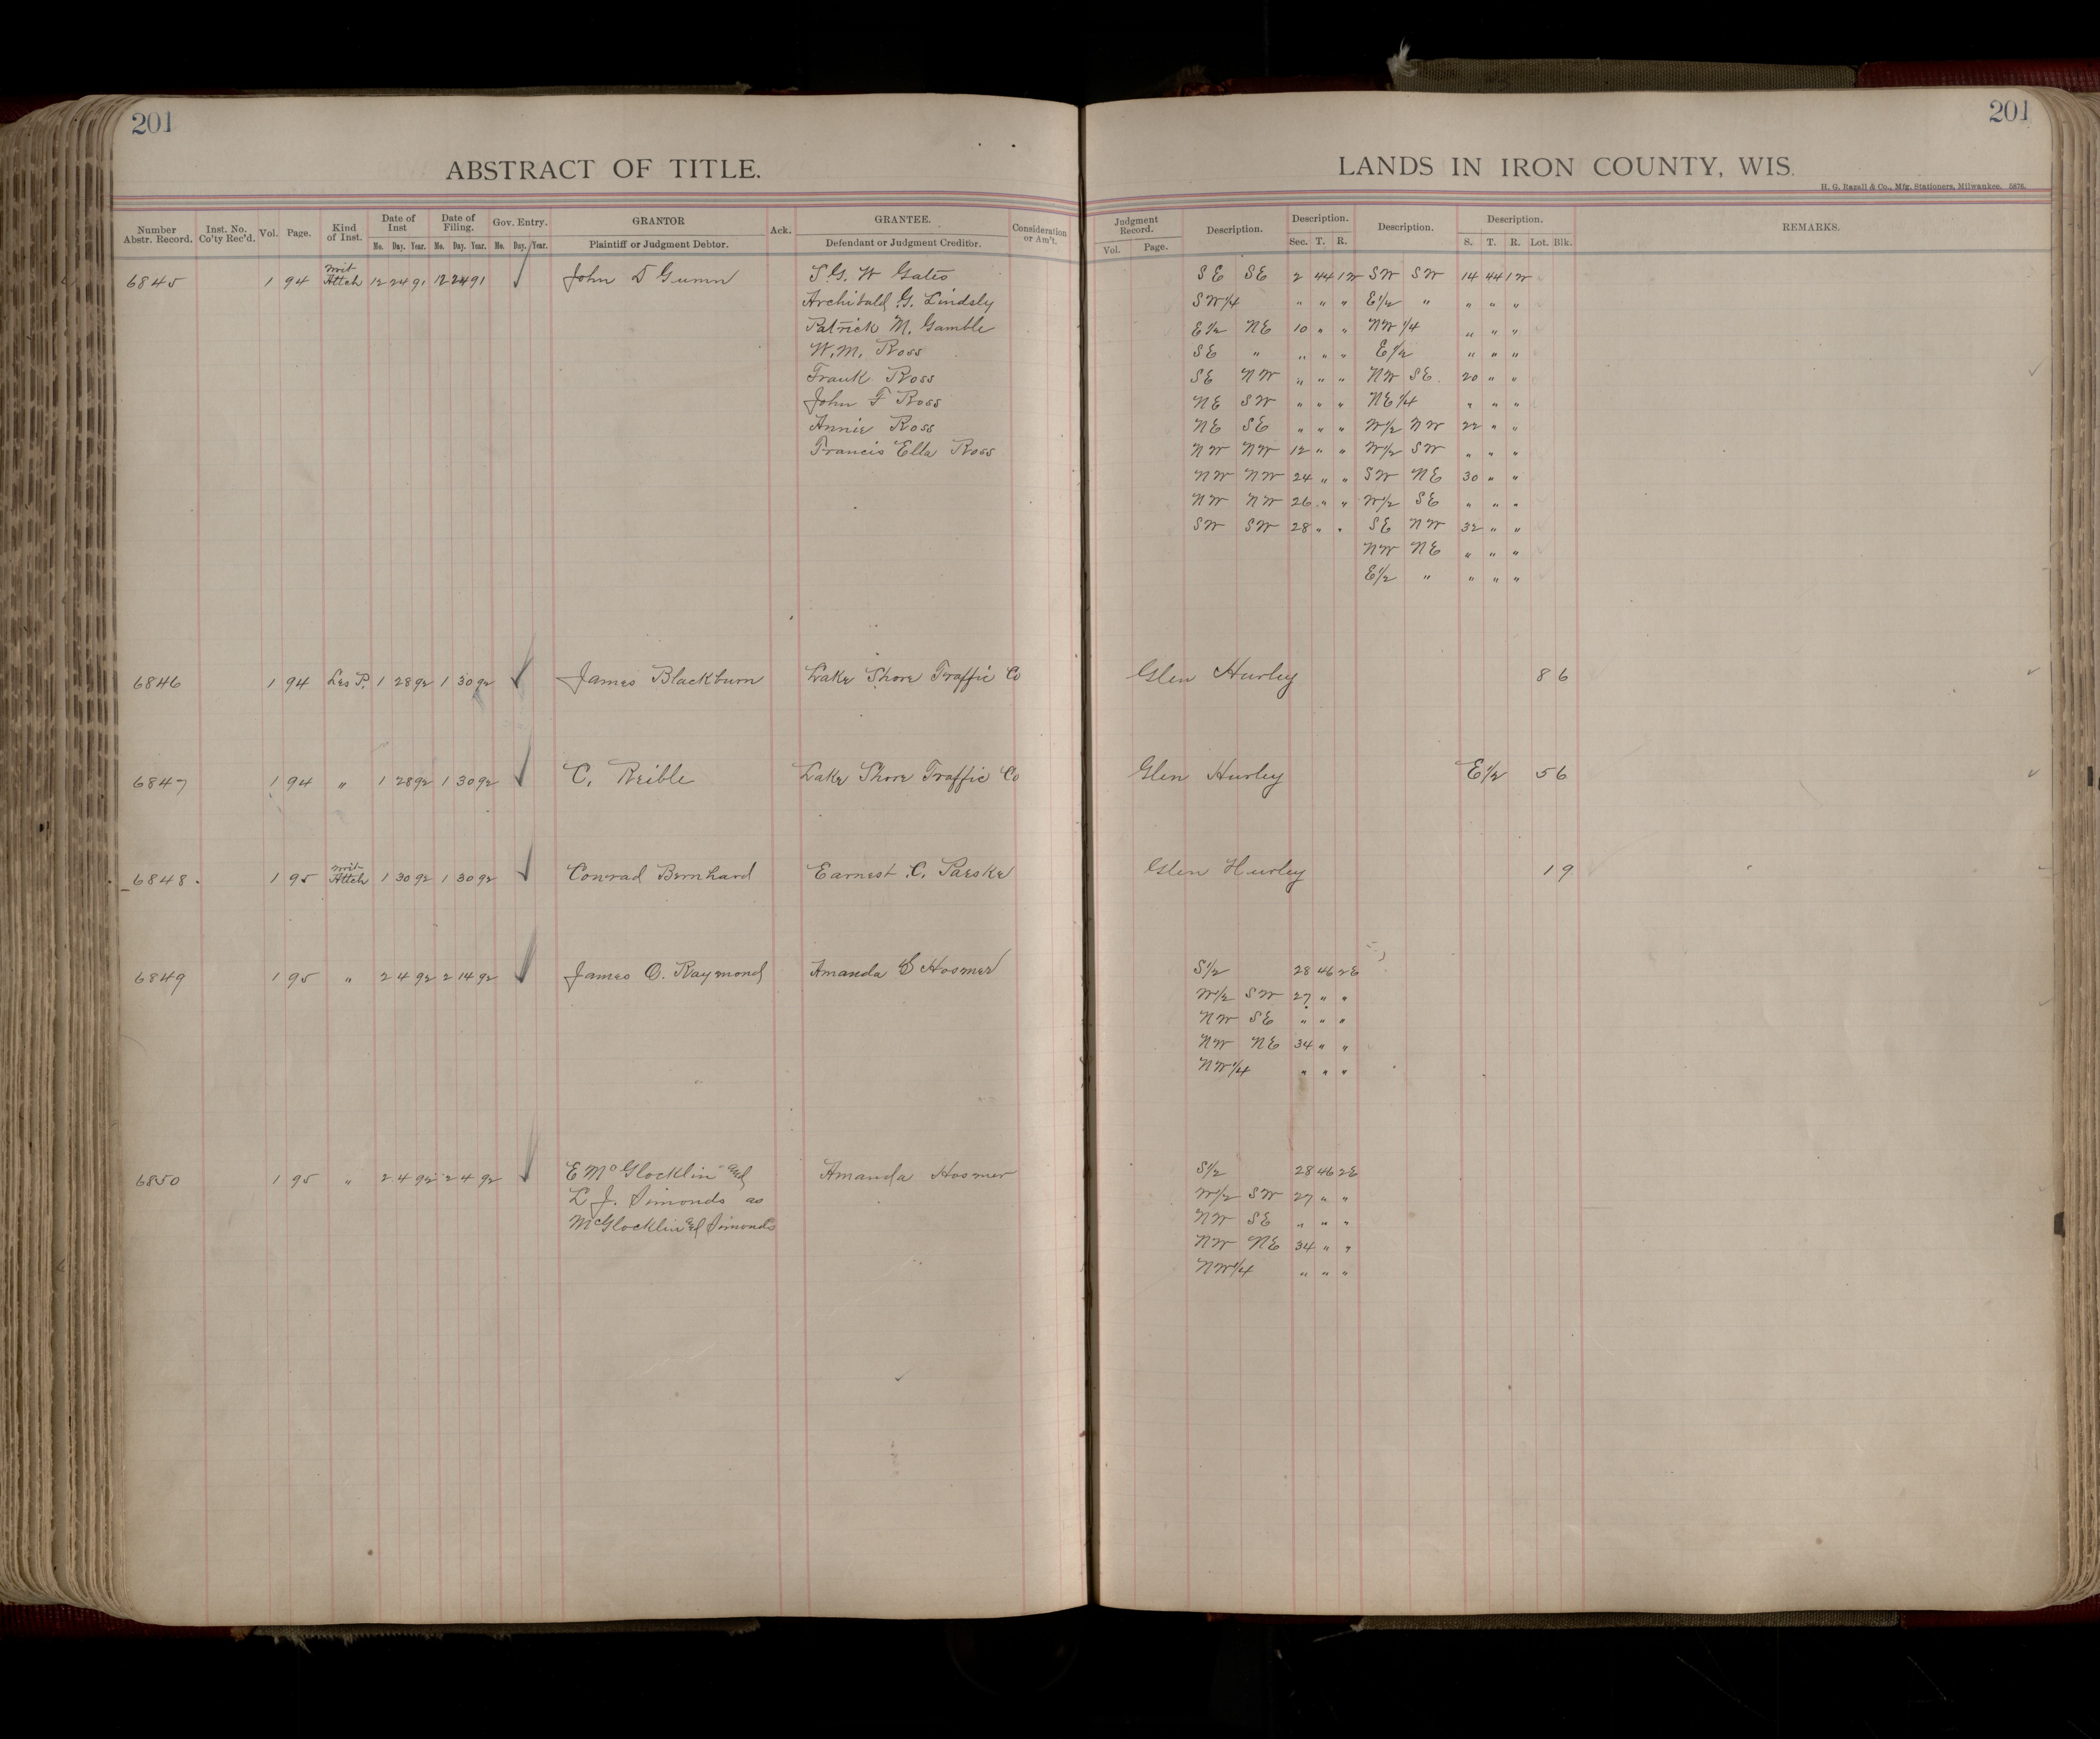 201
201
ABSTRACT OF TITLE.
LANDS IN IRON COUNTY, WIS.
H. G. Razall & Co., Mfg. Stationers, Milwaukee. 5876.
Number Abstr. Record. Inst. No. Co'ty Rec'd. Vol. Page. Kind of Inst. Date of Inst Mo. Day. Year. Date of Filing. Mo. Day. Year. Gov. Entry. Mo. Day. Year. GRANTOR Plaintiff or Judgment Debtor. Ack. GRANTEE. Defendant or Judgment Creditor. Consideration or Am't. Judgment Record. Vol. Page. Description. Description. Sec. T. R. Description. Description. S. T. R. Lot. Blk. REMARKS.
6845 1 94 Writ Attch 12 24 91 12 24 91 John D Gunn S. G. W Gates SE SE 2 44 1W SW SW 14 44 1W
Archibald G. Lindsly SW1/4 " " " E1/2 " " " "
Patrick M. Gamble E1/2 NE 10 " " NW 1/4 " " "
W. M. Ross SE " " " " E1/2 " " "
Frank Ross SE NW " " " NW SE 20 " "
John F Ross NE SW " " " NE 1/4 " " "
Annie Ross NE SE " " " W1/2 NW 22 " "
Francis Ella Ross NW NW 12 " " W1/2 SW " " "
NW NW 24 " " SW NE 30 " "
NW NW 26 " " W1/2 SE " " "
SW SW 28 " " SE NW 32 " "
NW NE " " "
E1/2 " " " "
6846 1 94 Les P. 1 28 92 1 30 92 James Blackburn Lake Shore Traffic Co Glen Hurley 8 6
6847 1 94 " 1 28 92 1 30 92 C. Reible Lake Shore Traffic Co Glen Hurley E1/2 5 6
6848 1 95 Writ Attch 1 30 92 1 30 92 Conrad Bernhard Earnest C. Paeske Glen Hurley 1 9
6849 1 95 " 2 4 92 2 14 92 James O. Raymond Amanda Hosmer S1/2 28 46 2E
W1/2 SW 27 " "
NW SE " " "
NW NE 34 " "
NW1/4 " " "
6850 1 95 " 2 4 92 2 4 92 E McGlocklin and Amanda Hosmer S1/2 28 46 2E
L J. Simonds as W1/2 SW 27 " "
McGlocklin and Simonds NW SE " " "
NW NE 34 " "
NW1/4 " " "